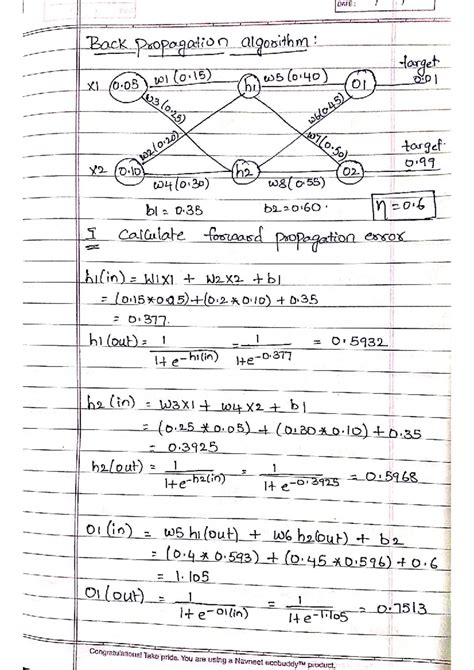 DATE: / /
Back propagation algorithm:
target
x1 0.05 w1(0.15) h1 w5(0.40) O1 0.01
w3(0.25) w6(0.45)
w2(0.20) w7(0.50)
target
x2 0.10 h2 O2 0.99
w4(0.30) w8(0.55)
b1 = 0.35 b2=0.60 η=0.6
I calculate forward propagation error
h1(in) = W1X1 + W2X2 + b1
= (0.15*0.05)+(0.2*0.10) + 0.35
= 0.377.
h1(out) = 1 / 1+e^-h1(in) = 1 / 1+e^-0.377 = 0.5932
h2(in) = W3X1 + W4X2 + b1
= (0.25*0.05) + (0.30*0.10) + 0.35
= 0.3925
h2(out) = 1 / 1+e^-h2(in) = 1 / 1+e^-0.3925 = 0.5968
O1(in) = W5 h1(out) + W6 h2(out) + b2
= (0.4*0.593) + (0.45*0.596) + 0.6
= 1.105
O1(out) = 1 / 1+e^-O1(in) = 1 / 1+e^-1.105 = 0.7513
Congratulations! Take pride. You are using a Navneet ecobuddy™ product.